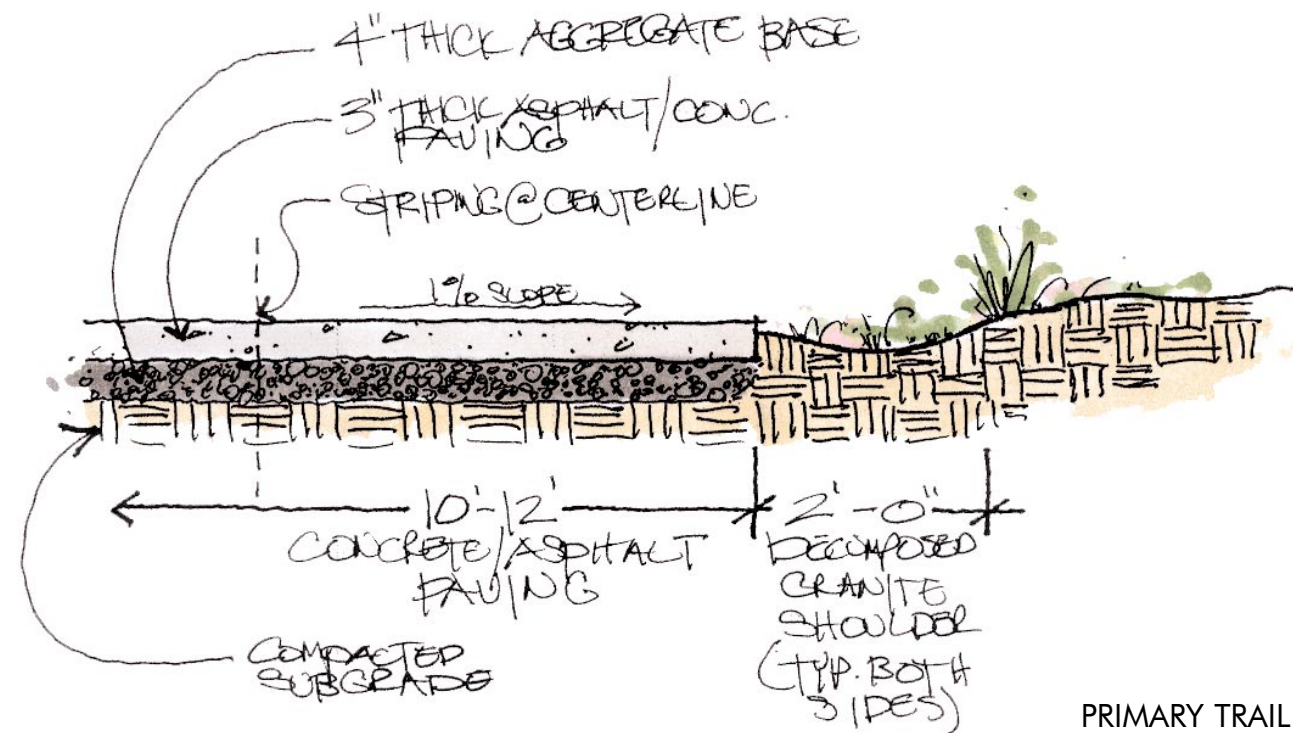 4" THICK AGGREGATE BASE
3" THICK ASPHALT/CONC.
PAVING
STRIPING @ CENTERLINE
1% SLOPE
10'-12'
CONCRETE/ASPHALT
PAVING
2'-0"
DECOMPOSED
GRANITE
SHOULDER
(TYP. BOTH
SIDES)
COMPACTED
SUBGRADE
PRIMARY TRAIL